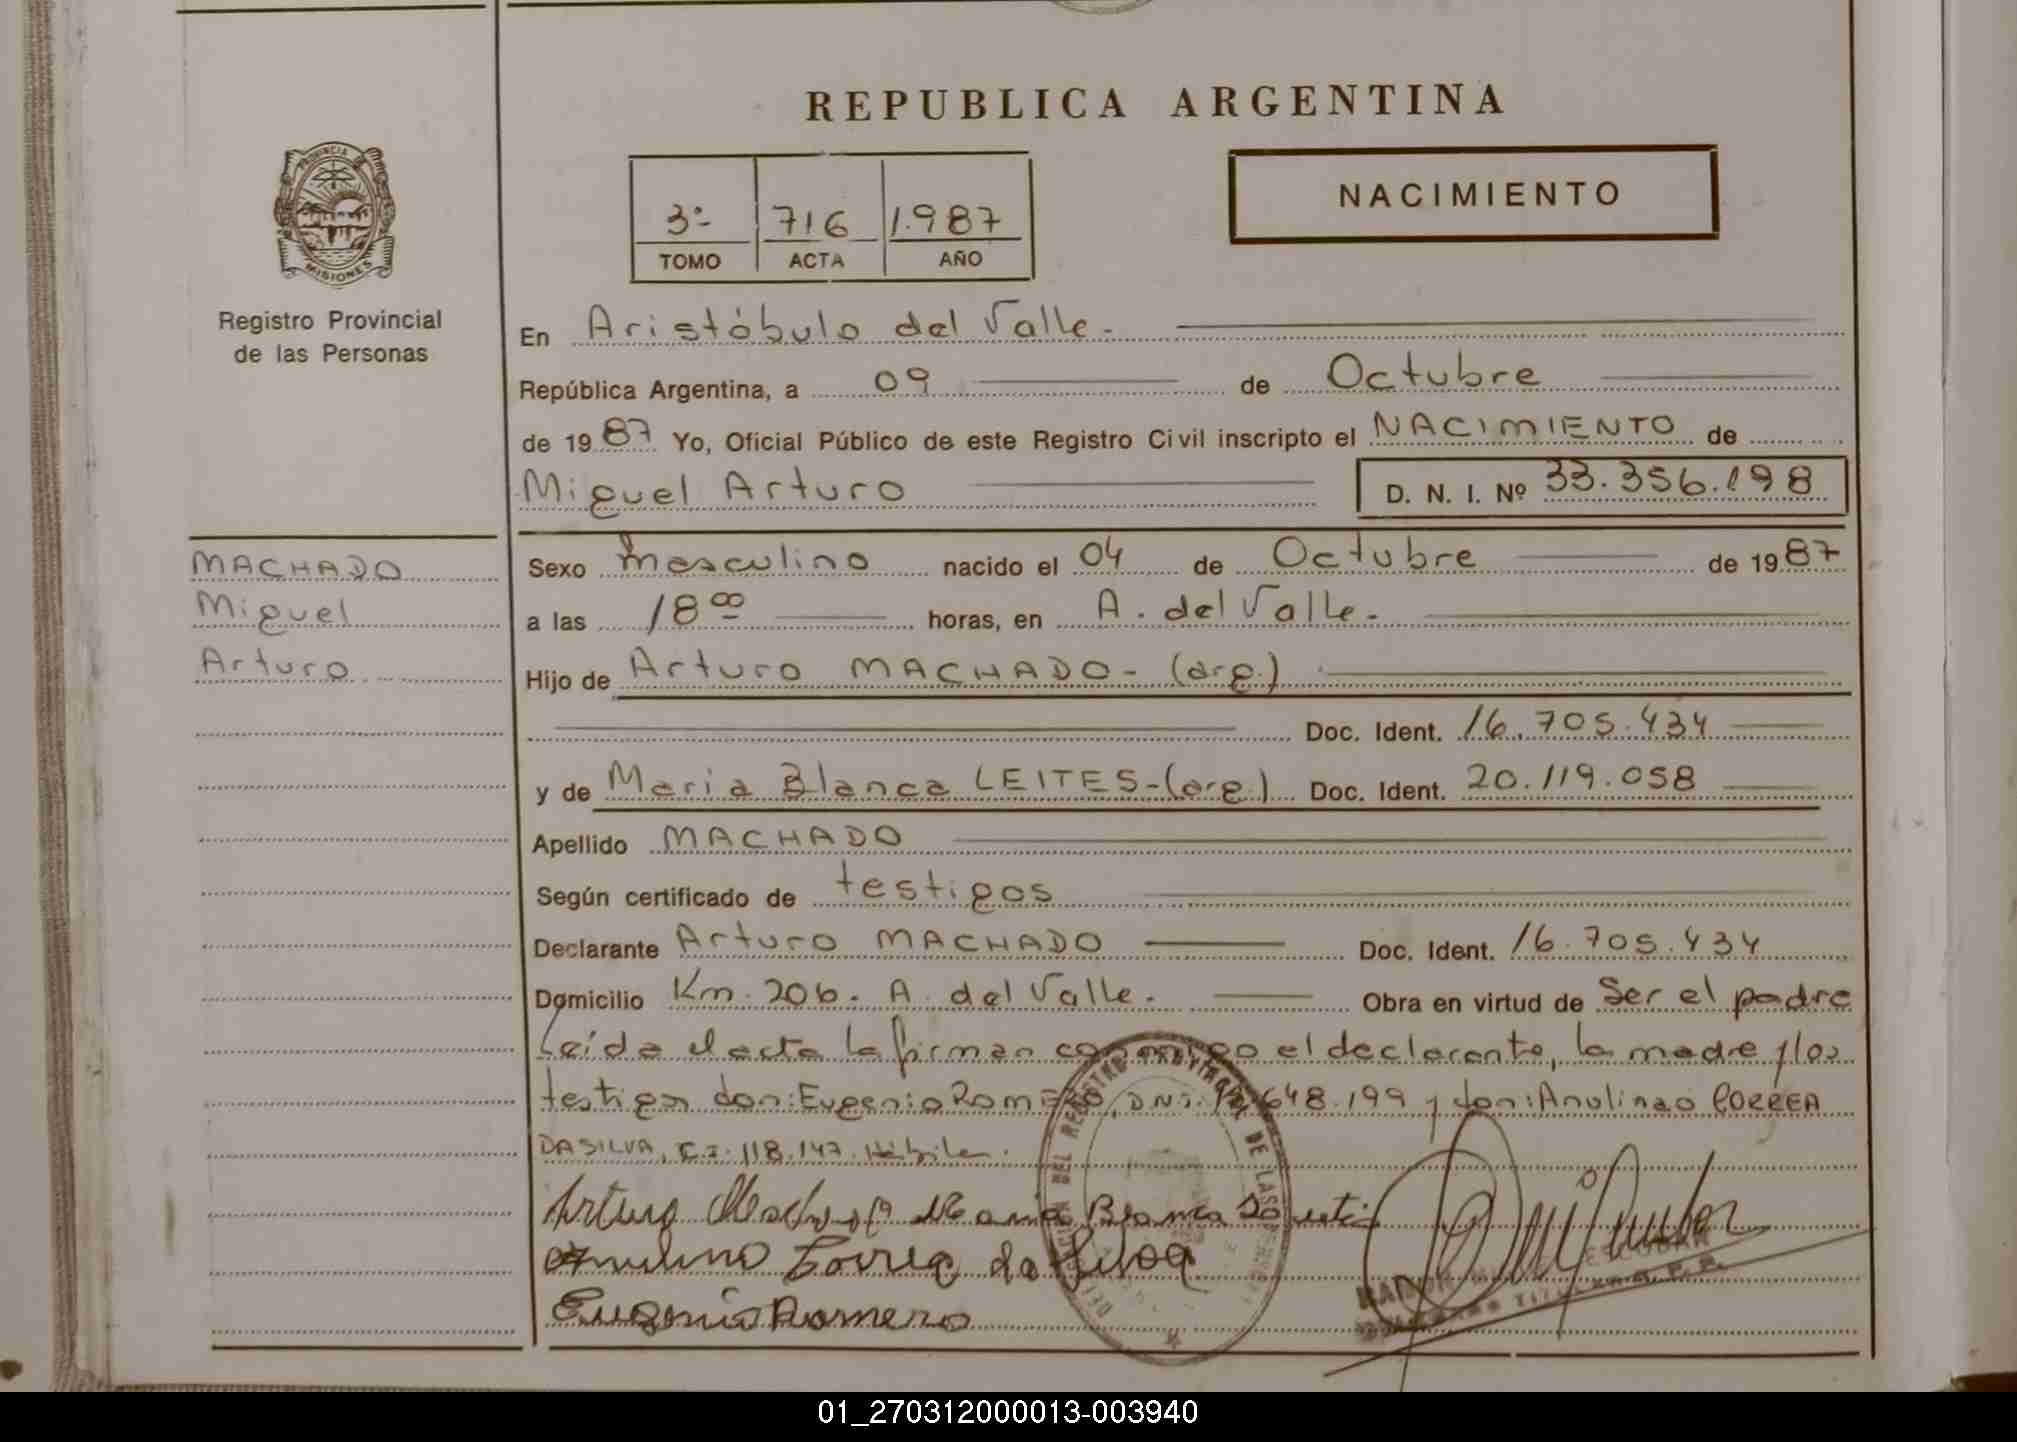 REPUBLICA ARGENTINA
PROVINCIA DE
MISIONES
Registro Provincial
de las Personas
3º 716 1.987
TOMO ACTA AÑO
NACIMIENTO
En Aristóbulo del Valle.-
República Argentina, a 09 de Octubre
de 1987 Yo, Oficial Público de este Registro Civil inscripto el NACIMIENTO de
Miguel Arturo D. N. I. Nº 33.356.198
MACHADO
Miguel
Arturo
Sexo Masculino nacido el 04 de Octubre de 1987
a las 18 00 horas, en A. del Valle.-
Hijo de Arturo MACHADO- (arg.)
Doc. Ident. 16.705.434
y de Maria Blanca LEITES-(arg.) Doc. Ident. 20.119.058
Apellido MACHADO
Según certificado de testigos
Declarante Arturo MACHADO Doc. Ident. 16.705.434
Domicilio Km. 206. A. del Valle.- Obra en virtud de Ser el padre
Leída el acta la firman conmigo el declarante, la madre y los
testigos don: Eugenio ROMERO, DNI. 648.199 y don: Anulino CORREA
DA SILVA, C.I. 118.147. Hábiles.
Arturo Machado Maria Blanca
Anulino Correa da Silva
Eugenio Romero
ESCOBAR
TITULAR
01_270312000013-003940